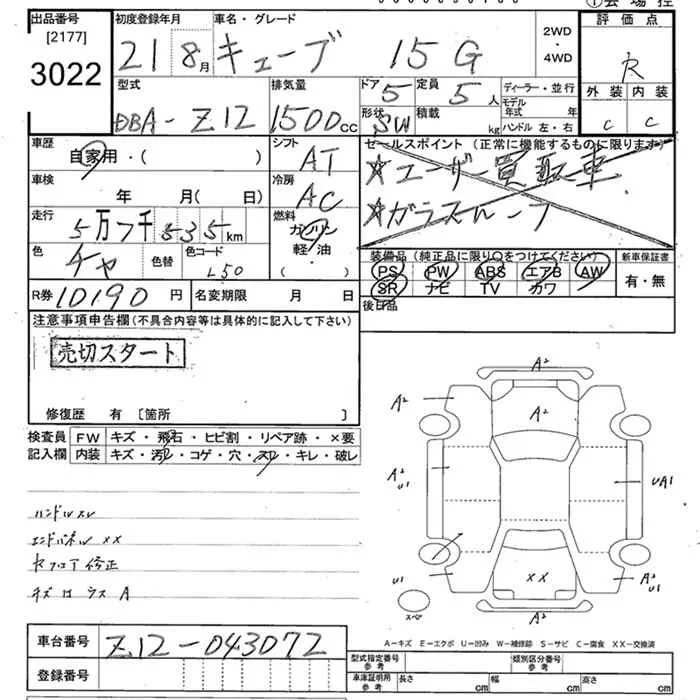 出品番号
[2177]
3022
初度登録年月
21 8月
車名・グレード
キューブ 15G
2WD
・
4WD
評価点
R
外装 内装
C C
型式
DBA-Z12
排気量
1500cc
ドア
5
定員
5人
形状
SW
積載
kg
ディーラー・並行
モデル
年式 年
ハンドル 左・右
車歴
自家用・( )
シフト
AT
セールスポイント (正常に機能するものに限ります)
☆ユーザー買取車
☆ガラスルーフ
車検
年 月( 日)
冷房
AC
走行
5万 535km
燃料
ガソリン
軽・油
( )
色
チャ
色替
色コード
L50
装備品 (純正品に限り○をつけてください)
PS PW ABS エアB AW
SR ナビ TV カワ
新車保証書
有・無
R券 10190円
名変期限 月 日
後日品
注意事項申告欄(不具合内容等は具体的に記入して下さい)
売切スタート
修復歴 有 [箇所 ]
検査員
記入欄
FW キズ・飛石・ヒビ割・リペア跡・×要
内装 キズ・汚レ・コゲ・穴・スレ・キレ・破レ
ハンドルスレ
エンドパネルXX
修正
A
A2
A2
A2
A2
U1
UA1
U1
XX
A2
U1
A2
スペア
A-キズ E-エクボ U-凹み W-補修跡 S-サビ C-腐食 XX-交換済
車台番号
Z12-043072
登録番号
型式指定番号
参考
類別区分番号
参考
車庫証明用
参考
長さ cm
幅 cm
高さ cm